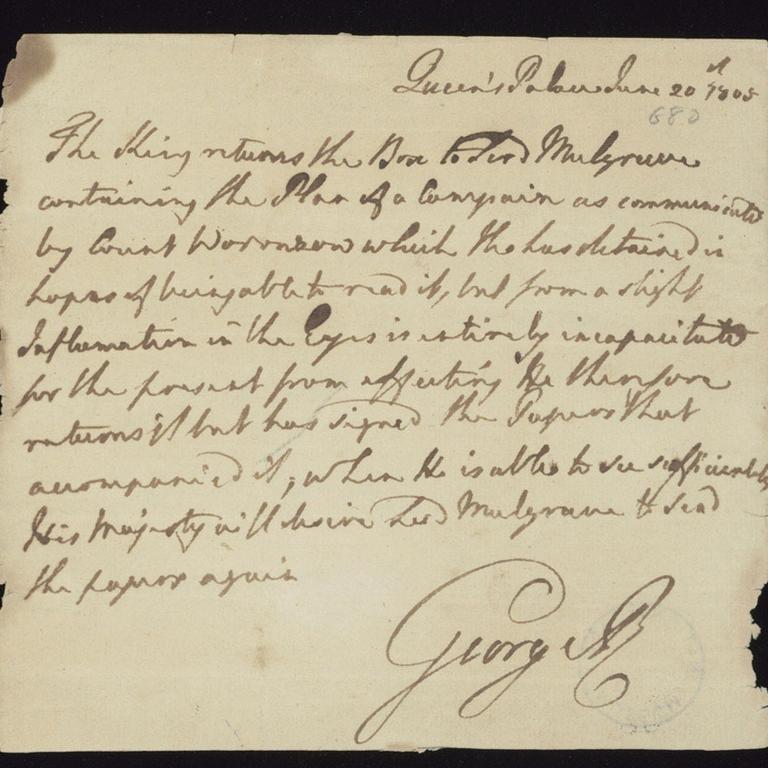 Queen's Palace June 20th 1805
680
The King returns the Box to Lord Mulgrave
containing the Plan of a Campain as communicated
by Count Woronzow which He has detained in
hopes of being able to read it, but from a slight
Inflamation in the Eyes is entirely incapacitated
for the present from effecting He therefore
returns it but has signed the Papers that
accompanied it; when He is able to see sufficiently
His Majesty will desire Lord Mulgrave to send
the papers again
George R